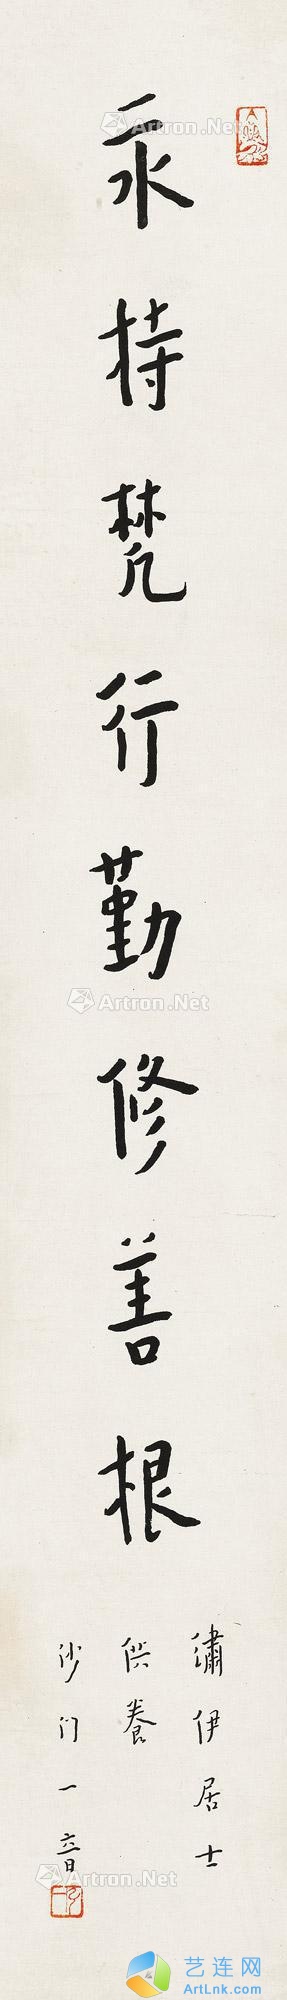 永持梵行勤修善根
繡伊居士
供養
沙门一音
Artron.Net
Artron.Net
Artron.Net
Artron.Net
Artron.Net
艺连网
ArtLnk.com